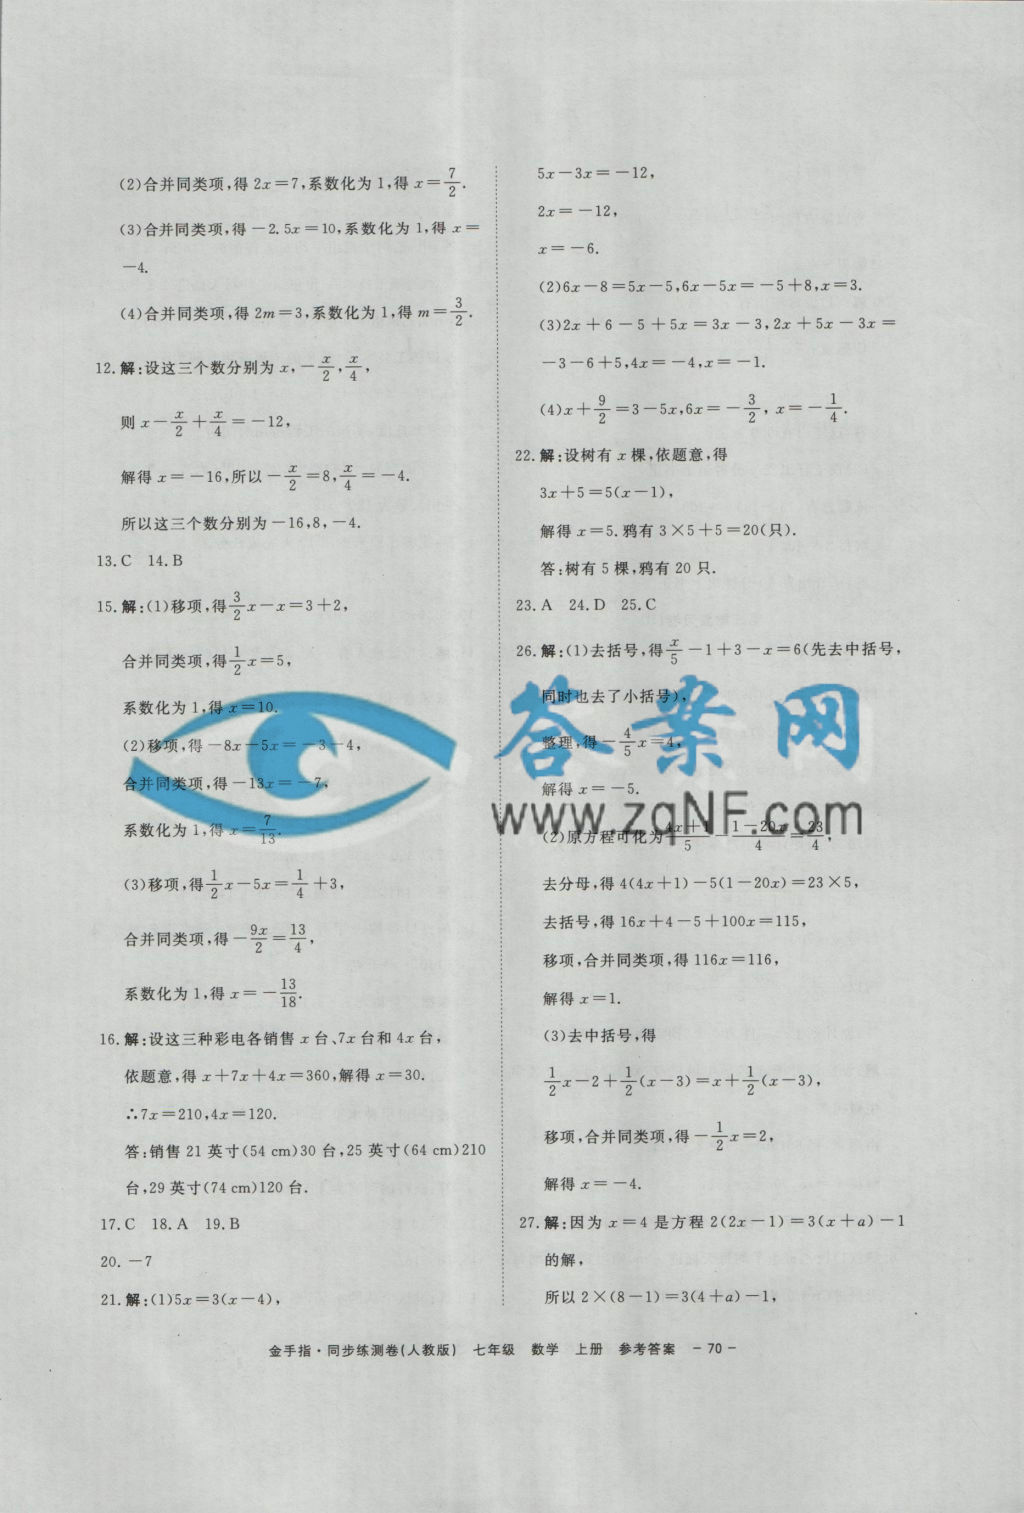 (2)合并同类项,得 2x=7,系数化为 1,得 x=7/2.
(3)合并同类项,得 -2.5x=10,系数化为 1,得 x=
-4.
(4)合并同类项,得 2m=3,系数化为 1,得 m=3/2.
12.解:设这三个数分别为 x,-x/2,x/4,
则 x-x/2+x/4=-12,
解得 x=-16,所以-x/2=8,x/4=-4.
所以这三个数分别为-16,8,-4.
13.C 14.B
15.解:(1)移项,得3/2x-x=3+2,
合并同类项,得1/2x=5,
系数化为 1,得 x=10.
(2)移项,得-8x-5x=-3-4,
合并同类项,得-13x=-7,
系数化为 1,得 x=7/13.
(3)移项,得1/2x-5x=1/4+3,
合并同类项,得-9x/2=13/4,
系数化为 1,得 x=-13/18.
16.解:设这三种彩电各销售 x 台、7x 台和 4x 台,
依题意,得 x+7x+4x=360,解得 x=30.
∴7x=210,4x=120.
答:销售 21 英寸(54 cm)30 台,25 英寸(64 cm)210
台,29 英寸(74 cm)120 台.
17.C 18.A 19.B
20.-7
21.解:(1)5x=3(x-4),
5x-3x=-12,
2x=-12,
x=-6.
(2)6x-8=5x-5,6x-5x=-5+8,x=3.
(3)2x+6-5+5x=3x-3,2x+5x-3x=
-3-6+5,4x=-4,x=-1.
(4)x+9/2=3-5x,6x=-3/2,x=-1/4.
22.解:设树有 x 棵,依题意,得
3x+5=5(x-1),
解得 x=5.鸦有 3×5+5=20(只).
答:树有 5 棵,鸦有 20 只.
23.A 24.D 25.C
26.解:(1)去括号,得x/5-1+3-x=6(先去中括号,
同时也去了小括号),
整理,得-4/5x=4,
解得 x=-5.
(2)原方程可化为4x+1/5-1-20x/4=23/4,
去分母,得 4(4x+1)-5(1-20x)=23×5,
去括号,得 16x+4-5+100x=115,
移项,合并同类项,得 116x=116,
解得 x=1.
(3)去中括号,得
1/2x-2+1/2(x-3)=x+1/2(x-3),
移项,合并同类项,得-1/2x=2,
解得 x=-4.
27.解:因为 x=4 是方程 2(2x-1)=3(x+a)-1
的解,
所以 2×(8-1)=3(4+a)-1,
答案网
www.zqNF.com
金手指·同步练测卷(人教版) 七年级 数学 上册 参考答案 -70-